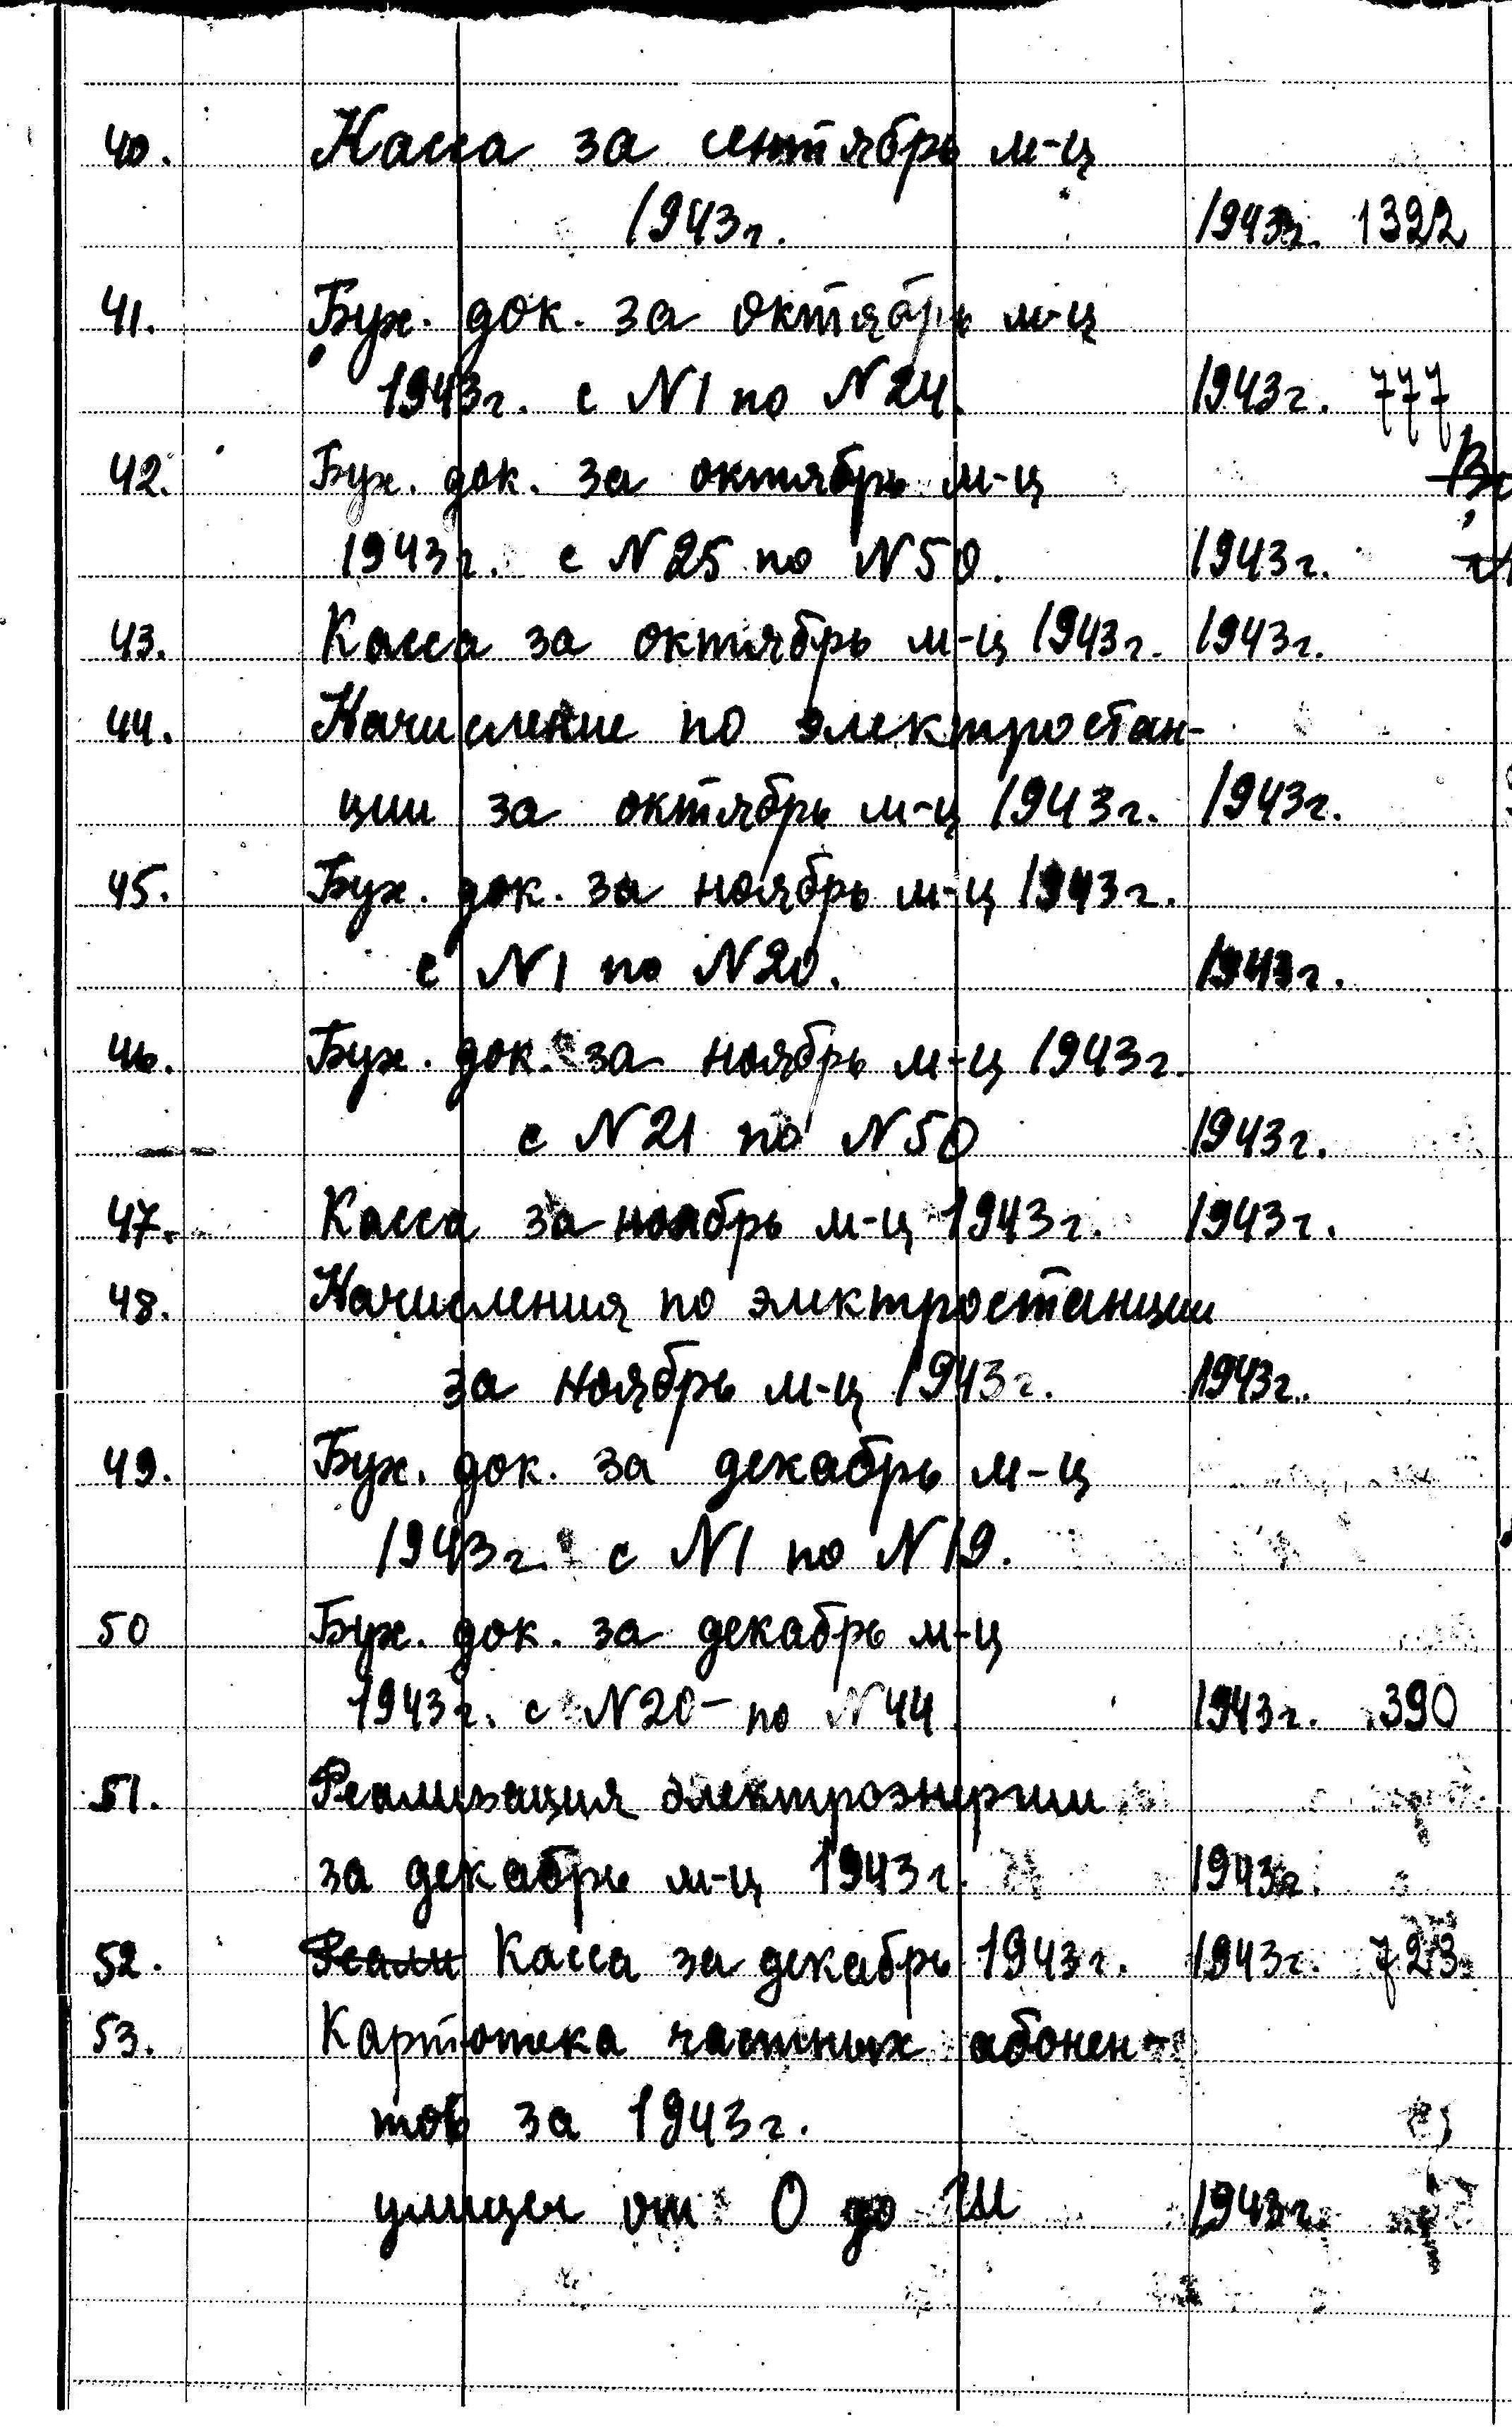 40. Касса за сентябрь м-ц
1943г. 1943г. 1392
41. Бух. док. за октябрь м-ц
1943г. с N1 по N24. 1943г. 777
42. Бух. док. за октябрь м-ц
1943г. с N25 по N50. 1943г.
43. Касса за октябрь м-ц 1943г. 1943г.
44. Начисление по электростан-
ции за октябрь м-ц 1943г. 1943г.
45. Бух. док. за ноябрь м-ц 1943г.
с N1 по N20. 1943г.
46. Бух. док. за ноябрь м-ц 1943г.
с N21 по N50 1943г.
47. Касса за ноябрь м-ц 1943г. 1943г.
48. Начисления по электростанции
за ноябрь м-ц 1943г. 1943г.
49. Бух. док. за декабрь м-ц
1943г. с N1 по N19.
50 Бух. док. за декабрь м-ц
1943г. с N20- по N44 1943г. 390
51. Реализация электроэнергии
за декабрь м-ц 1943г. 1943г.
52. Реали Касса за декабрь 1943г. 1943г. 723
53. Картотека частных абонен-
тов за 1943г.
улицы от О до Ш 1943г.